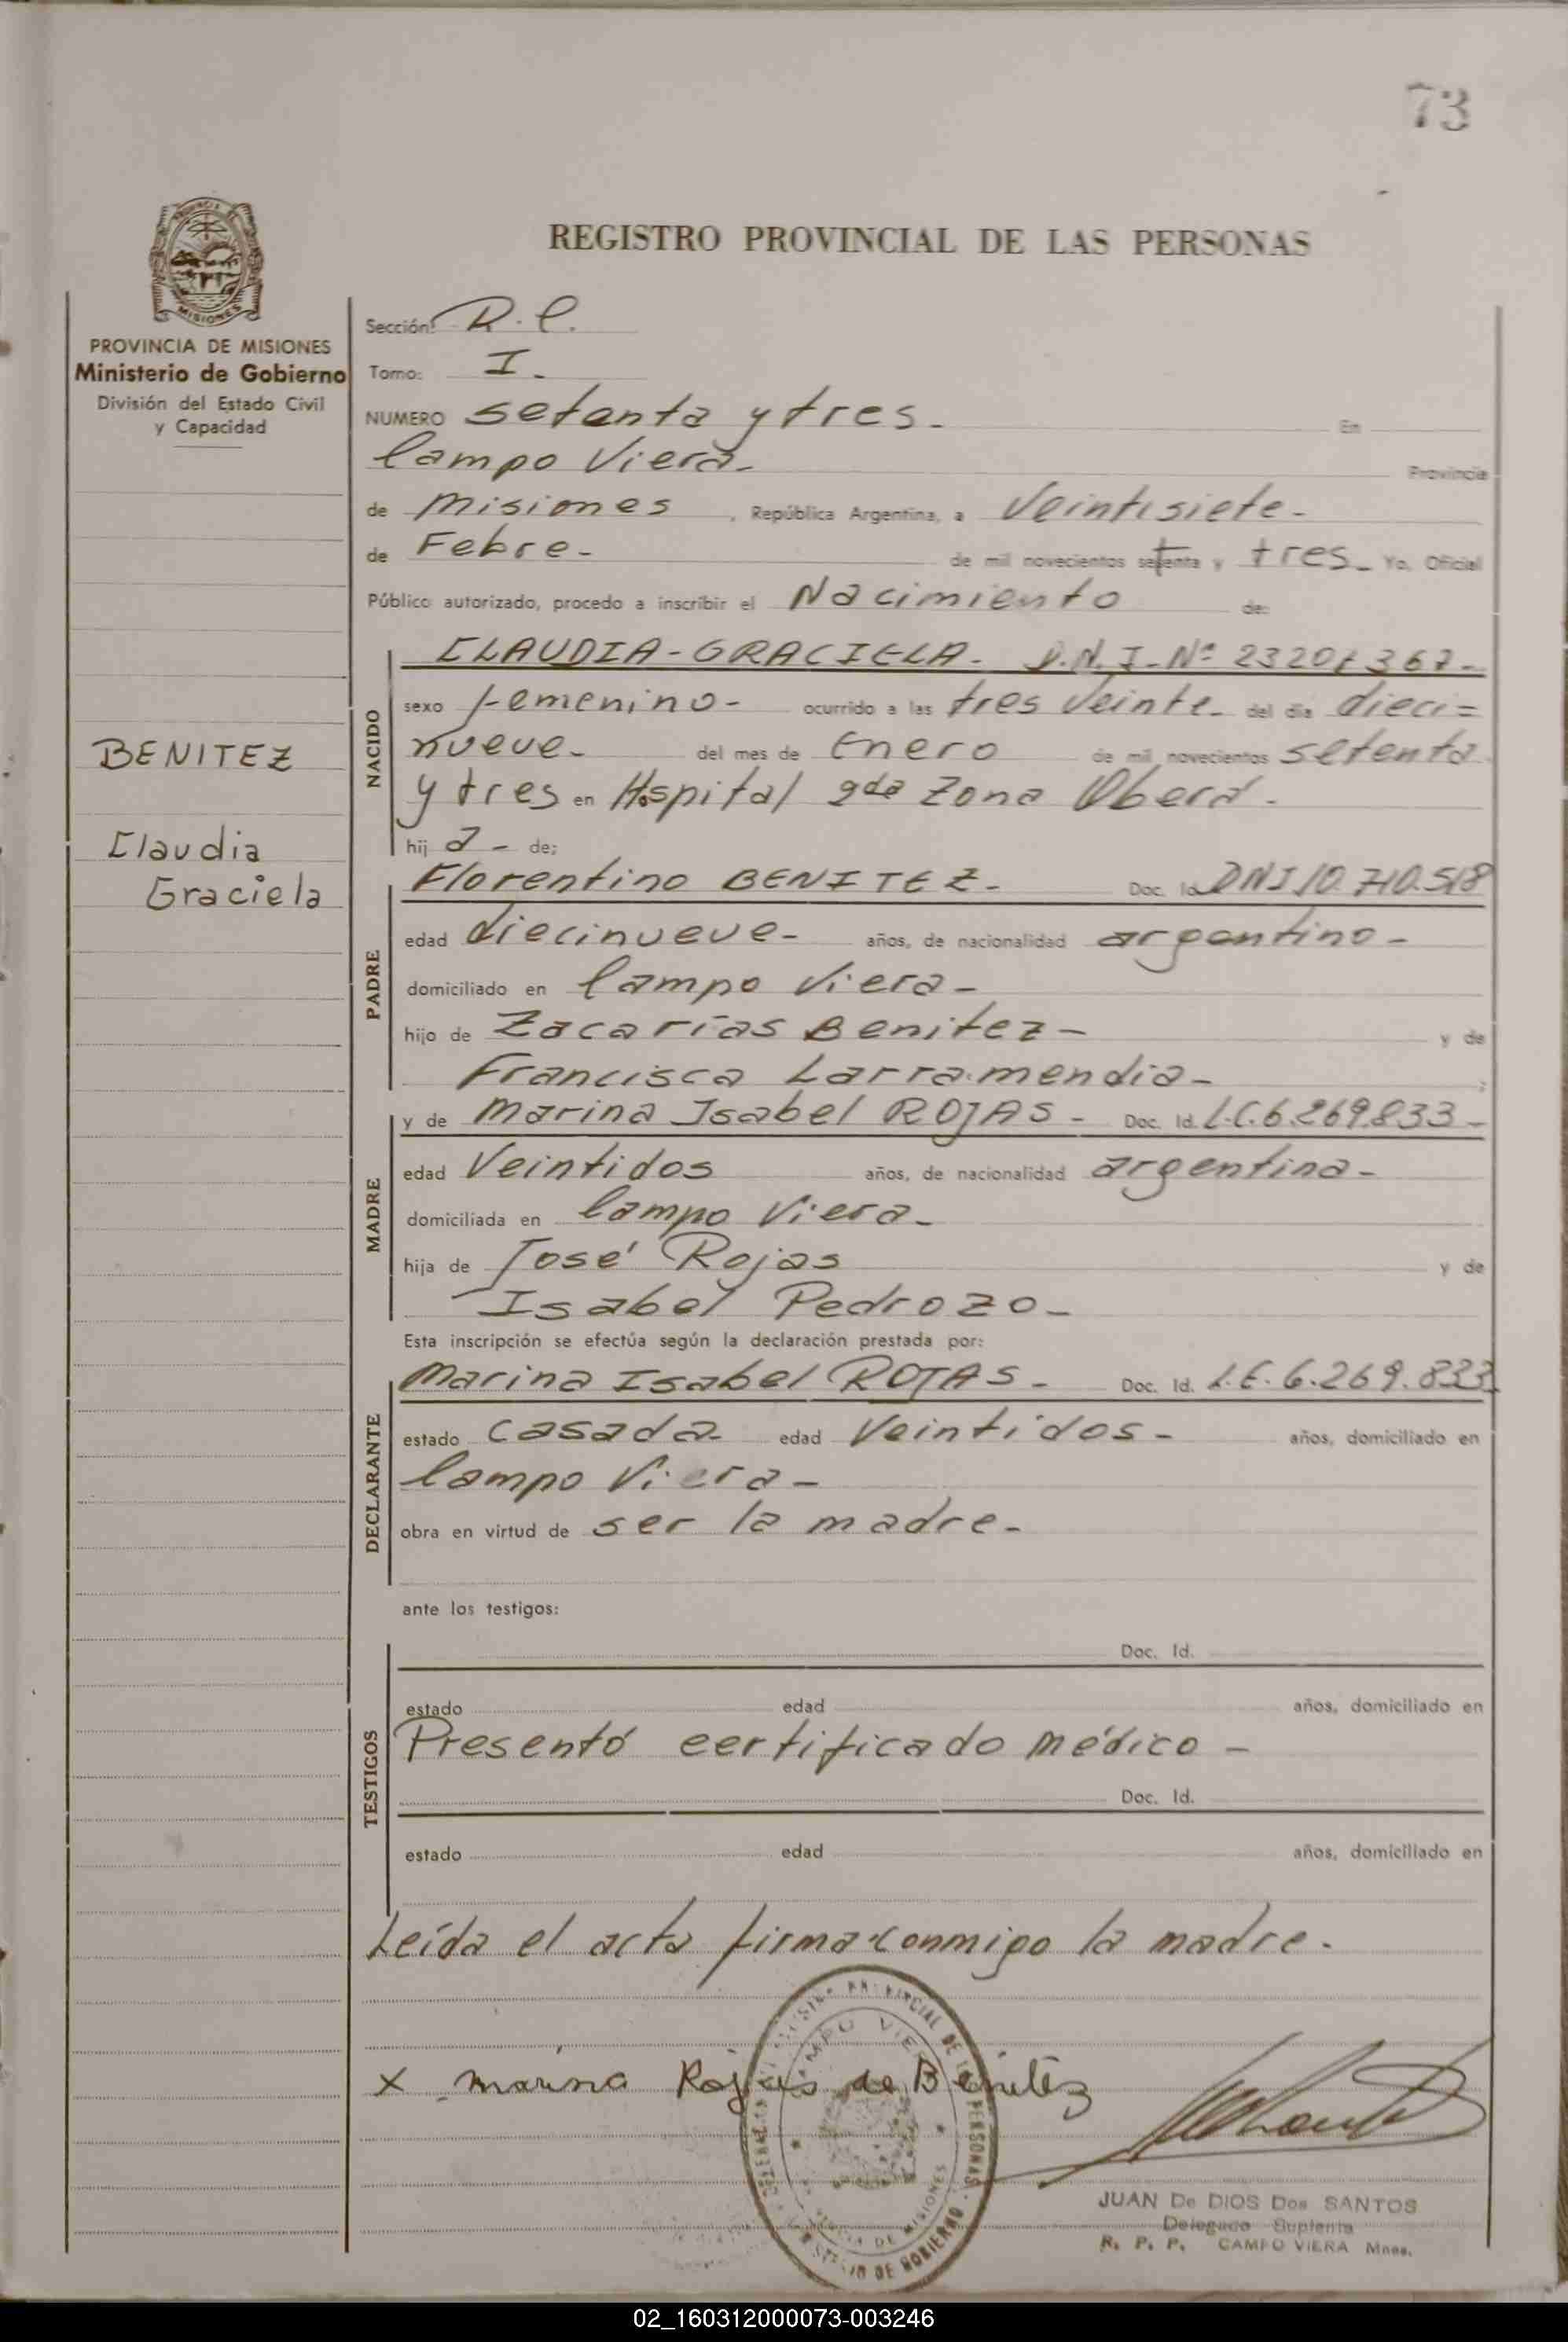 73
REGISTRO PROVINCIAL DE LAS PERSONAS
MISIONES
PROVINCIA DE MISIONES
Ministerio de Gobierno
División del Estado Civil
y Capacidad
BENITEZ
Claudia
Graciela
Sección:
Tomo: I.
NUMERO setenta y tres. En
Campo Viera. Provincia
de Misiones, República Argentina, a Veintisiete.
de Febre. de mil novecientos setenta y tres. Yo, Oficial
Público autorizado, procedo a inscribir el Nacimiento de:
NACIDO
CLAUDIA-GRACIELA. D.N.I. Nº
sexo femenino- ocurrido a las tres veinte. del día dieci=
nueve. del mes de Enero de mil novecientos setenta
y tres en Hospital 2da Zona Oberá.
hij a - de:
PADRE
Florentino BENITEZ. Doc. Id. DNI 10.710.518
edad diecinueve- años, de nacionalidad argentino-
domiciliado en Campo Viera-
hijo de Zacarías Benitez- y de
Francisca Larramendia- ;
MADRE
y de Marina Isabel ROJAS - Doc. Id. L.C. 6.269.833-
edad Veintidos años, de nacionalidad argentina-
domiciliada en Campo Viera.
hija de José Rojas y de
Isabel Pedrozo-
Esta inscripción se efectúa según la declaración prestada por:
DECLARANTE
Marina Isabel ROJAS. Doc. Id. L.C. 6.269.833
estado casada edad Veintidos- años, domiciliado en
Campo Viera-
obra en virtud de ser la madre.
ante los testigos:
TESTIGOS
Doc. Id.
estado edad años, domiciliado en
Presentó certificado médico -
Doc. Id.
estado edad años, domiciliado en
Leída el acta firma conmigo la madre.
x marina Rojas de Benitez
JUAN De DIOS Dos SANTOS
Delegado Suplente
R. P. P. CAMPO VIERA Mnes.
02_160312000073-003246